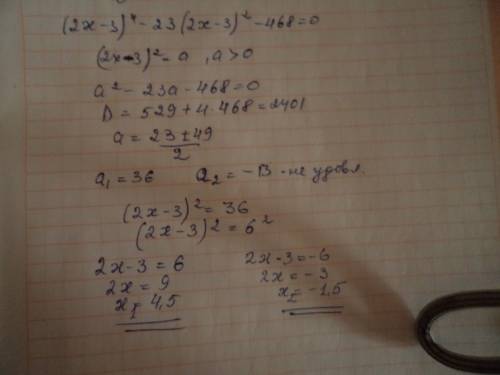 (2x-3)⁴ - 23(2x-3)² - 468=0
(2x-3)² = a , a>0
a² - 23a - 468=0
D = 529 + 4·468 = 2401
a = (23±49)/2
a₁ = 36 a₂ = -13 - не удовл.
(2x-3)² = 36
(2x-3)² = 6²
2x-3 = 6 2x-3 = -6
2x = 9 2x = -3
x₁ = 4,5 x₂ = -1,5